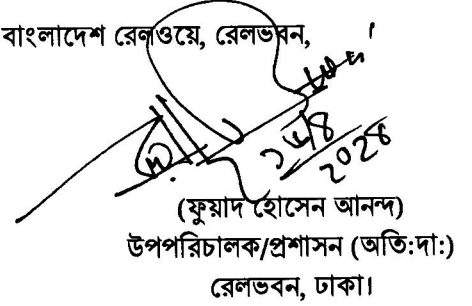 বাংলাদেশ রেলওয়ে, রেলভবন,
(ফুয়াদ হোসেন আনন্দ)
উপপরিচালক/প্রশাসন (অতি:দা:)
রেলভবন, ঢাকা।